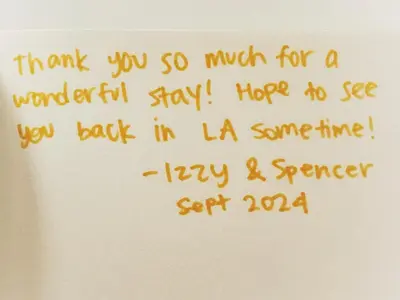 Thank you so much for a
wonderful stay! Hope to see
you back in LA sometime!
- Izzy & Spencer
Sept 2024